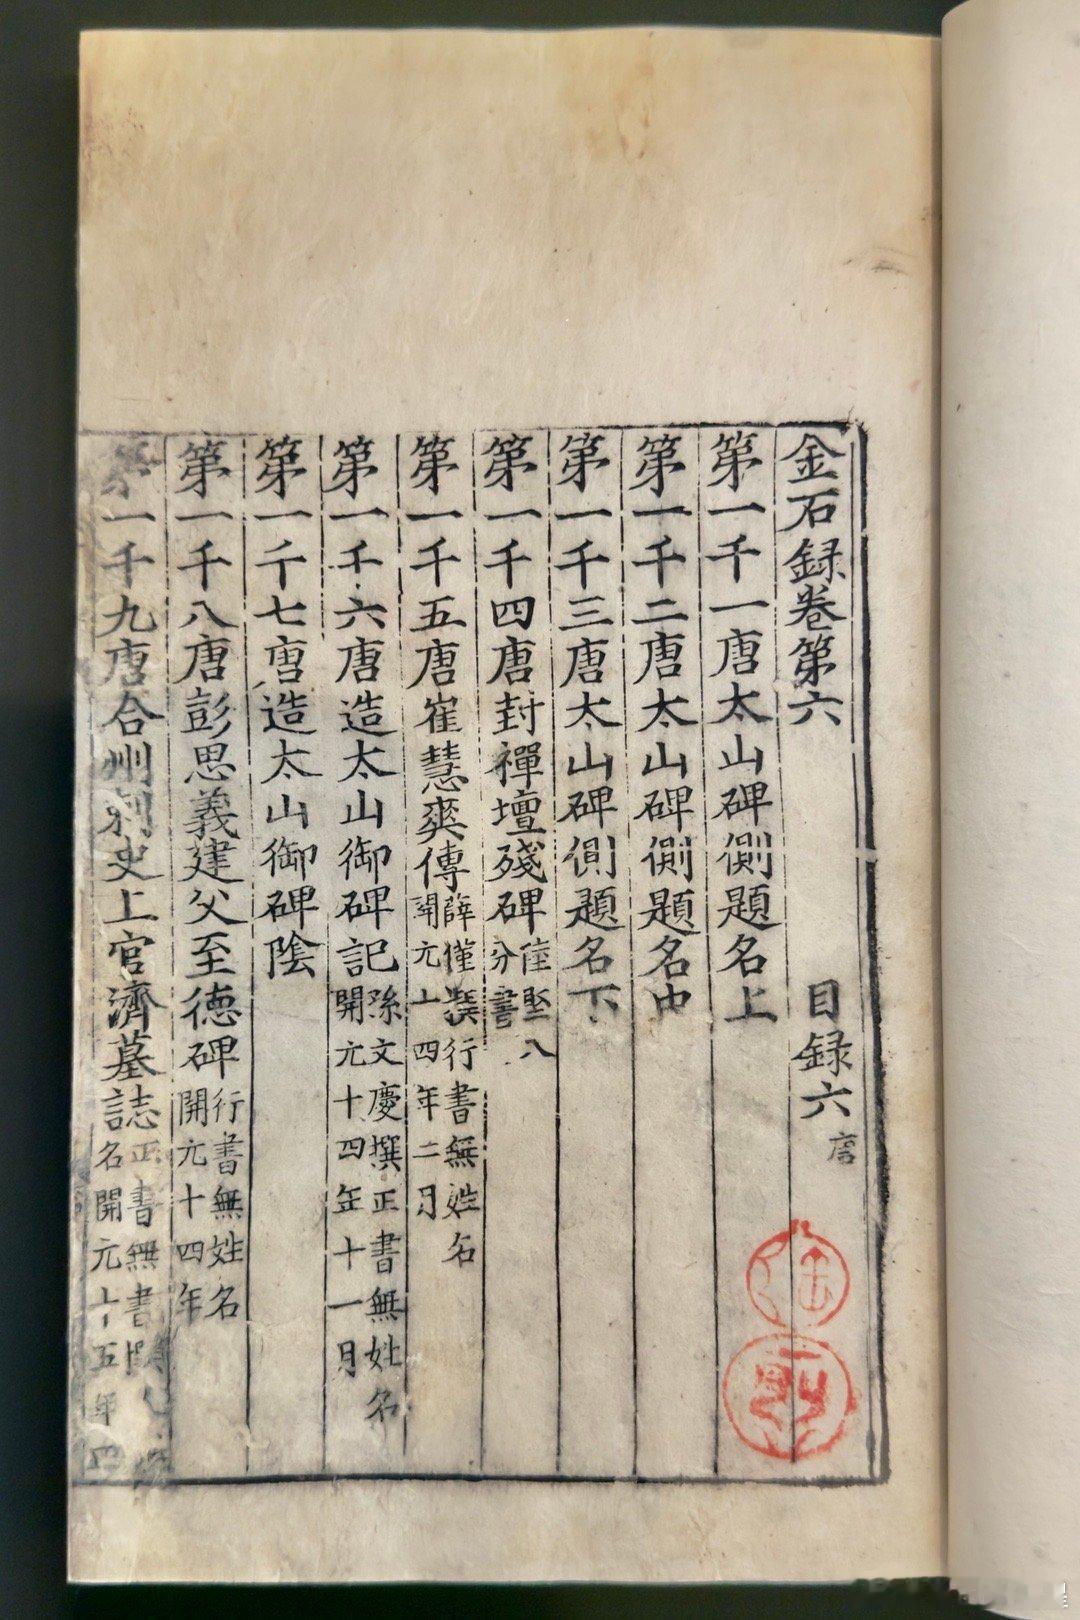 金石録卷第六 目録六 唐
第一千一唐太山碑側題名上
第一千二唐太山碑側題名中
第一千三唐太山碑側題名下
第一千四唐封禪壇殘碑 陸堅八分書
第一千五唐崔慧奭傳 薛僅撰行書無姓名開元十四年二月
第一千六唐造太山御碑記 孫文慶撰正書無姓名開元十四年十一月
第一千七唐造太山御碑陰
第一千八唐彭思義建父至德碑 行書無姓名開元十四年
第一千九唐合州刺史上官濟墓誌 正書無書名開元十五年四